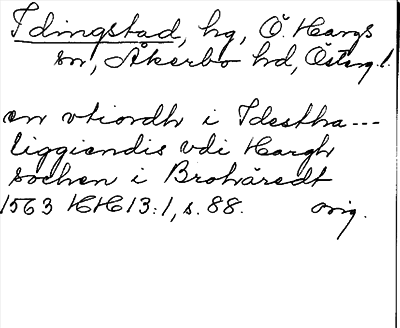 Idingstad, hg, Ö. Hargs
sn, Åkerbo hd, Österg.l.
en vtiordh i Idestha---
liggiendis vdi Hargh
sochen i Brohäredt
1563 HH 13:1, s. 88. orig.